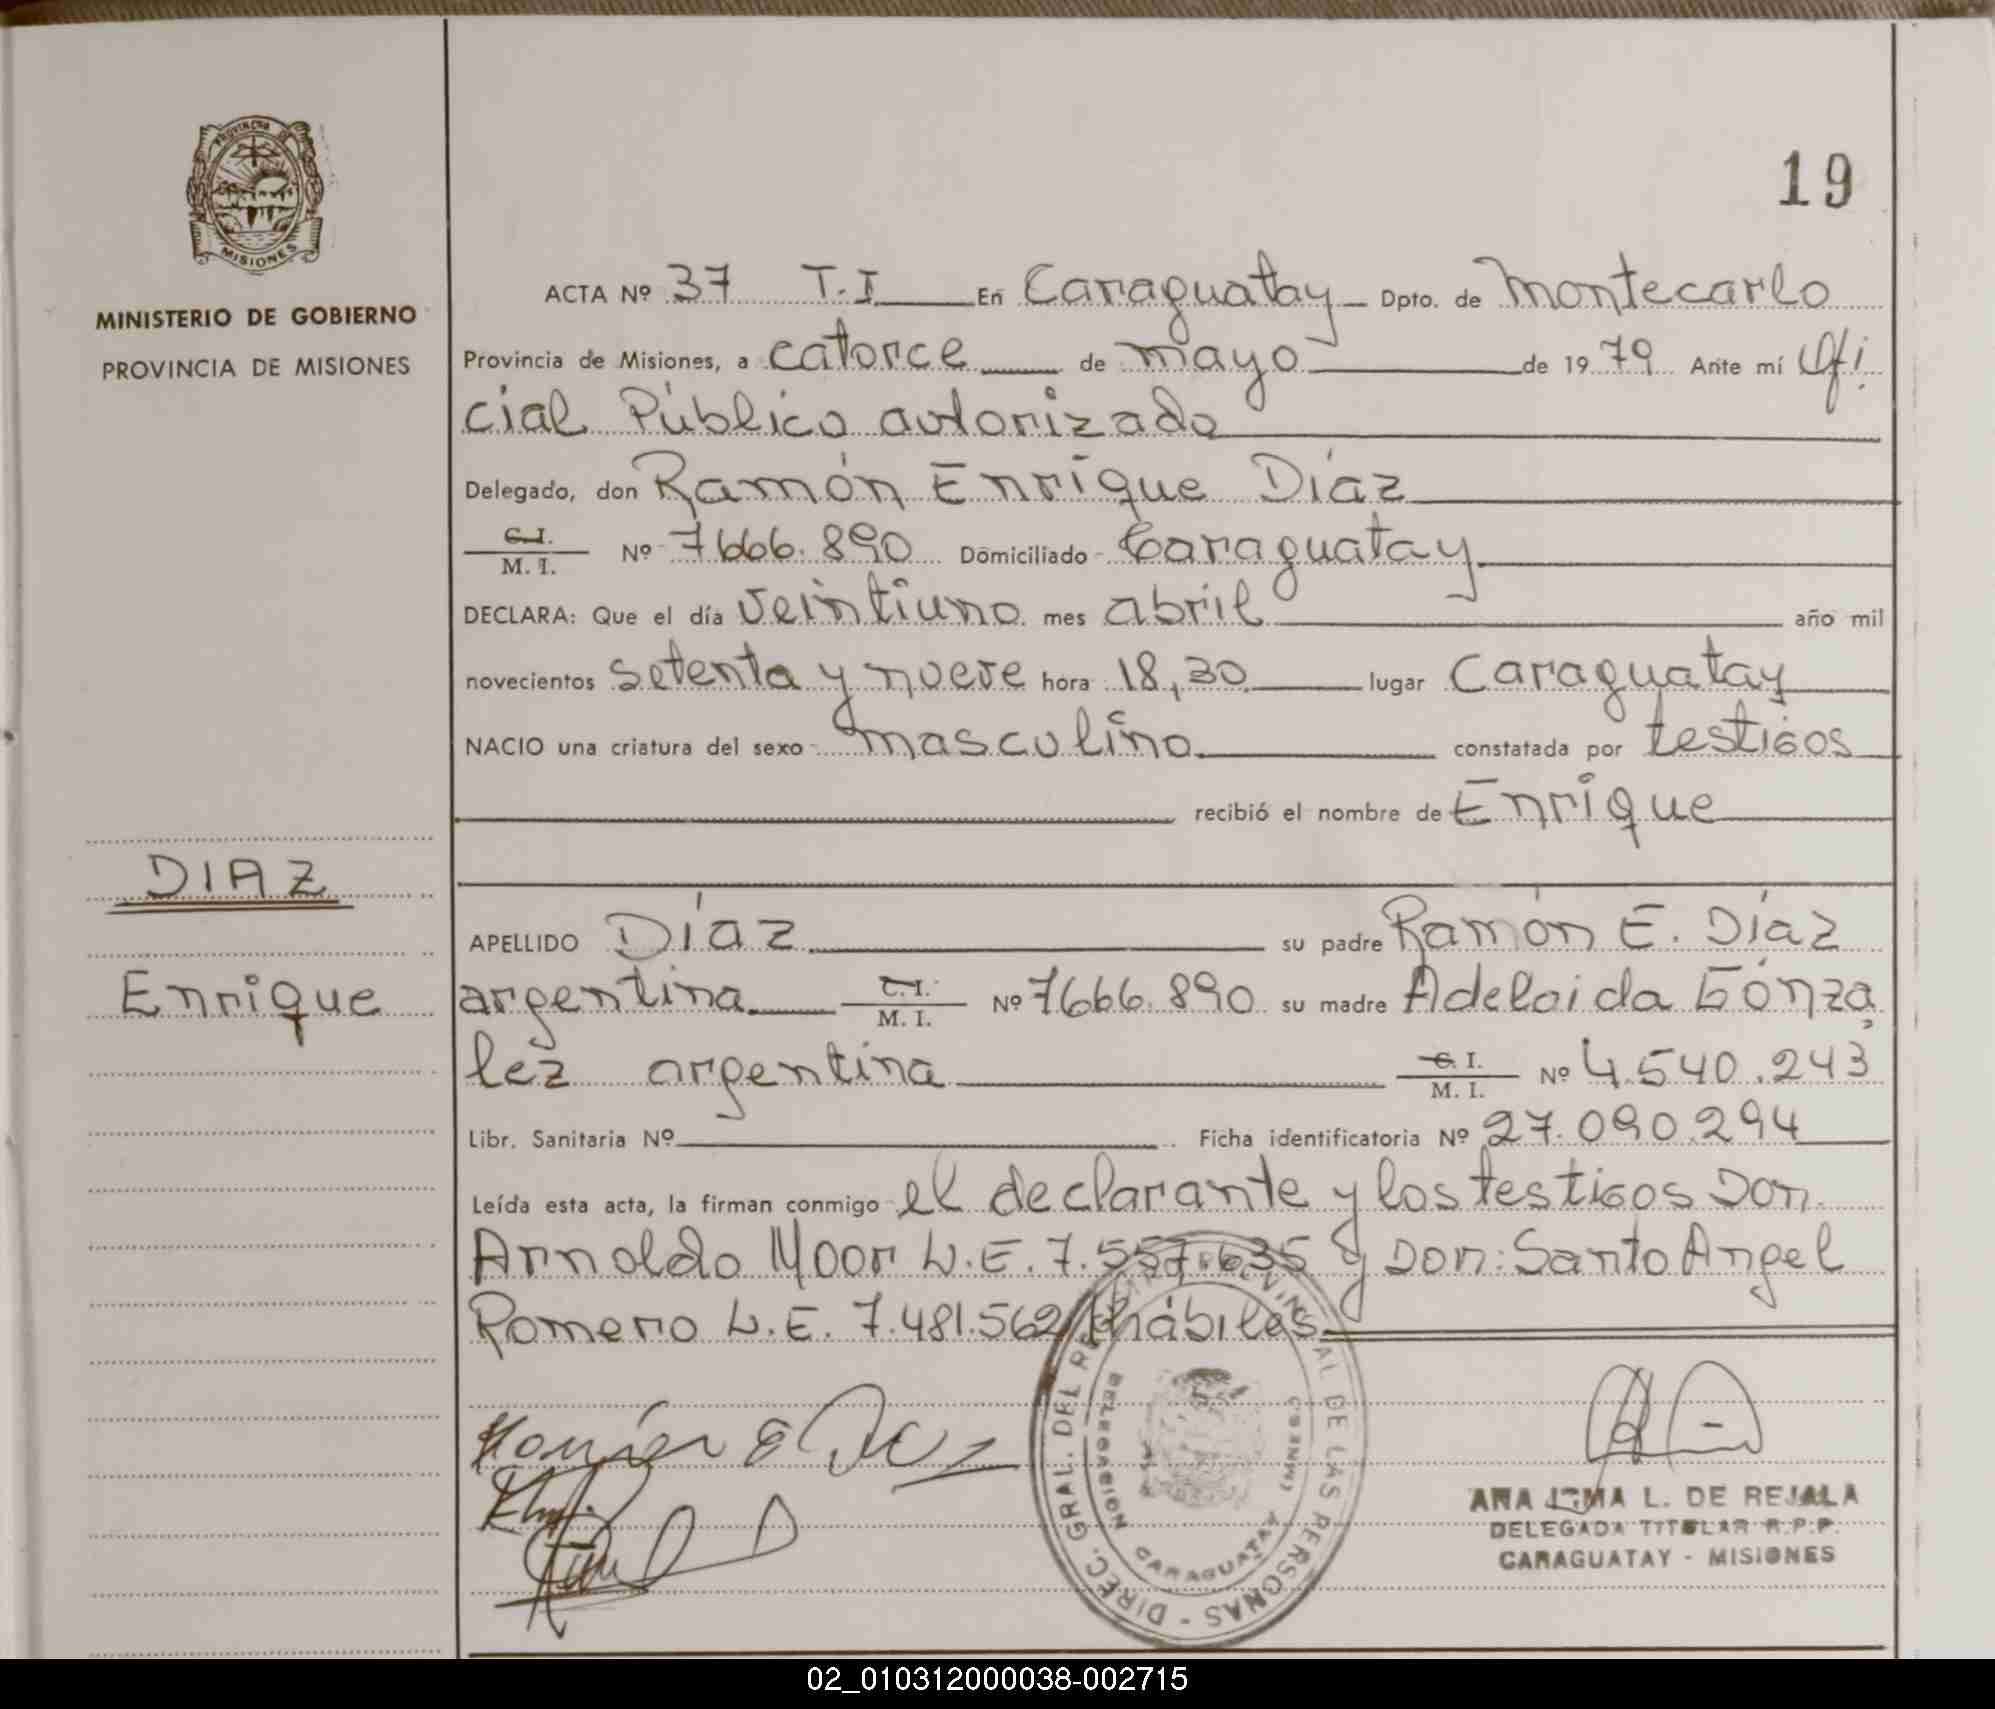 19
PROVINCIA DE
MISIONES
MINISTERIO DE GOBIERNO
PROVINCIA DE MISIONES
DIAZ
Enrique
ACTA Nº 37 T.I En Caraguatay Dpto. de Montecarlo
Provincia de Misiones, a catorce de mayo de 1979 Ante mí Ofi
cial Público autorizado
Delegado, don Ramón Enrique Díaz
C.I. M. I. Nº 7666.890 Domiciliado Caraguatay
DECLARA: Que el día veintiuno mes abril año mil
novecientos setenta y nueve hora 18,30 lugar Caraguatay
NACIO una criatura del sexo masculino constatada por testigos
recibió el nombre de Enrique
APELLIDO Díaz su padre Ramón E. Díaz
argentina C.I. M. I. Nº 7666.890 su madre Adelaida Gónza
lez argentina C.I. M. I. Nº 4.540.243
Libr. Sanitaria Nº Ficha identificatoria Nº 27.090.294
Leída esta acta, la firman conmigo el declarante y los testigos Don
Arnoldo Moor L.E. 7.557.635 y Don: Santo Angel
Romero L.E. 7.481.562 hábiles
DIREC. GRAL. DEL REGISTRO PROVINCIAL DE LAS PERSONAS -
DELEGACION CARAGUATAY (MNES.)
ANA IRMA L. DE REJALA
DELEGADA TITULAR R.P.P.
CARAGUATAY - MISIONES
02_010312000038-002715